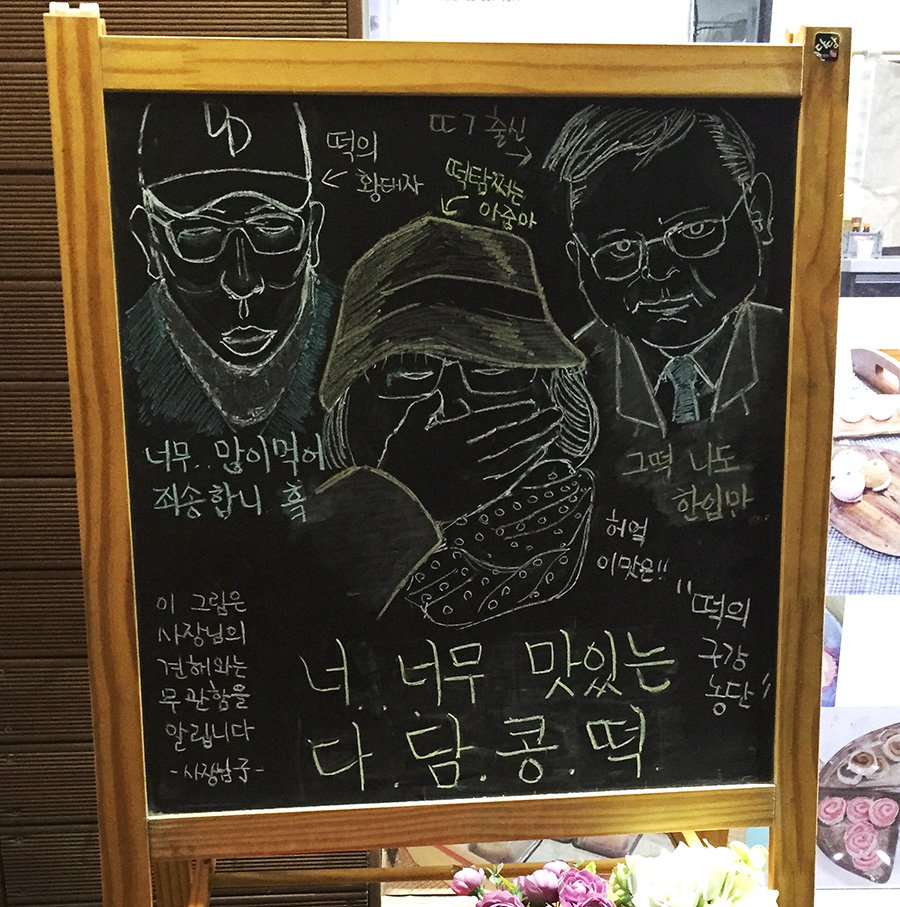 떡의
황태자
ㄸㄱ 출신
떡탐쩌는
아줌마
너무.. 많이먹어
죄송합니 흑
그떡 나도
한입만
허억
이맛은!!
"떡의
구강
농단"
이 그림은
사장님의
견해와는
무관함을
알립니다
너..너무 맛있는
다.담.콩.떡.